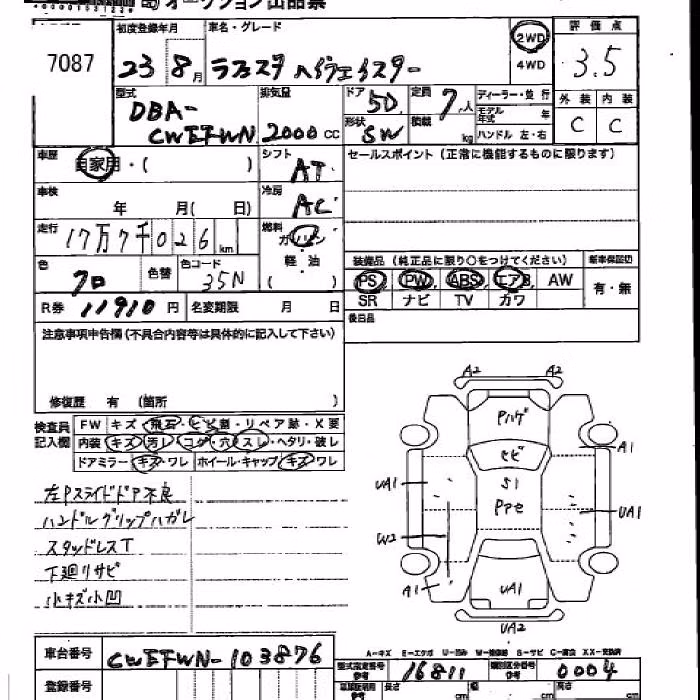 オークション出品票
7087
初度登録年月
23 8月
車名・グレード
ラフェスタ ハイウェイスター
2WD
4WD
評価点
3.5
型式
DBA-
CWEFWN
排気量
2000 cc
ドア
5D
形状
SW
定員
7人
積載
kg
ディーラー・並行
モデル年式 年
ハンドル 左・右
外装 内装
C C
車歴
自家用・( )
シフト
AT
セールスポイント (正常に機能するものに限ります)
車検
年 月( 日)
冷房
AC
走行
17万7千026km
燃料
ガソリン
軽油
( )
色
クロ
色替
色コード
35N
装備品 (純正品に限り○をつけてください)
新車保証書
PS PW ABS エアB AW
有・無
SR ナビ TV カワ
R券 11910円
名変期限 月 日
後日品
注意事項申告欄(不具合内容等は具体的に記入して下さい)
修復歴 有 (箇所 )
検査員記入欄
FW キズ・飛石・ヒビ割・リペア跡・X要
内装 キズ・汚レ・コゲ・穴・スレ・ヘタリ・破レ
ドアミラー キズ・ワレ ホイール・キャップ キズ・ワレ
左Pスライドドア不良
ハンドルグリップハガレ
スタッドレスT
下廻リサビ
小キズ小凹
A2 A2
Pハゲ
ヒビ
A1
UA1
S1
UA1
W2
A1
UA1
UA2
車台番号 CWEFWN-103876
A-キズ E-エクボ U-凹み W-補修跡 S-サビ C-腐蝕 XX-交換済
型式指定番号 16811
類別区分番号 0004
登録番号
長さ cm
幅 cm
高さ cm